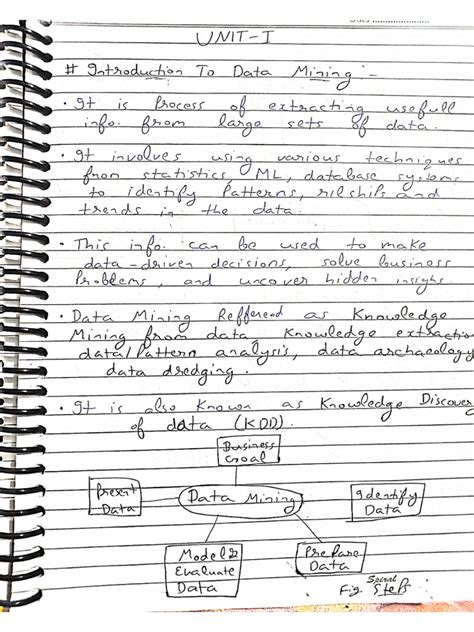 UNIT-I
# Introduction To Data Mining :-
• It is Process of extracting usefull
info. from large sets of data.
• It involves using various techniques
from statistics, ML, database systems
to identify Patterns, rilships and
trends in the data.
• This info. can be used to make
data-driven decisions, solve business
Problems, and uncover hidden insighs.
• Data Mining Refferend as Knowledge
Mining from data, Knowledge extraction
data/Pattern analysis, data archaeology
data dredging.
• It is also Known as Knowledge Discover
of data (KDD).
Business
Goal
Present
Data
Data Mining
Identify
Data
Model &
Evaluate
Data
Prepare
Data
Fig. Steps